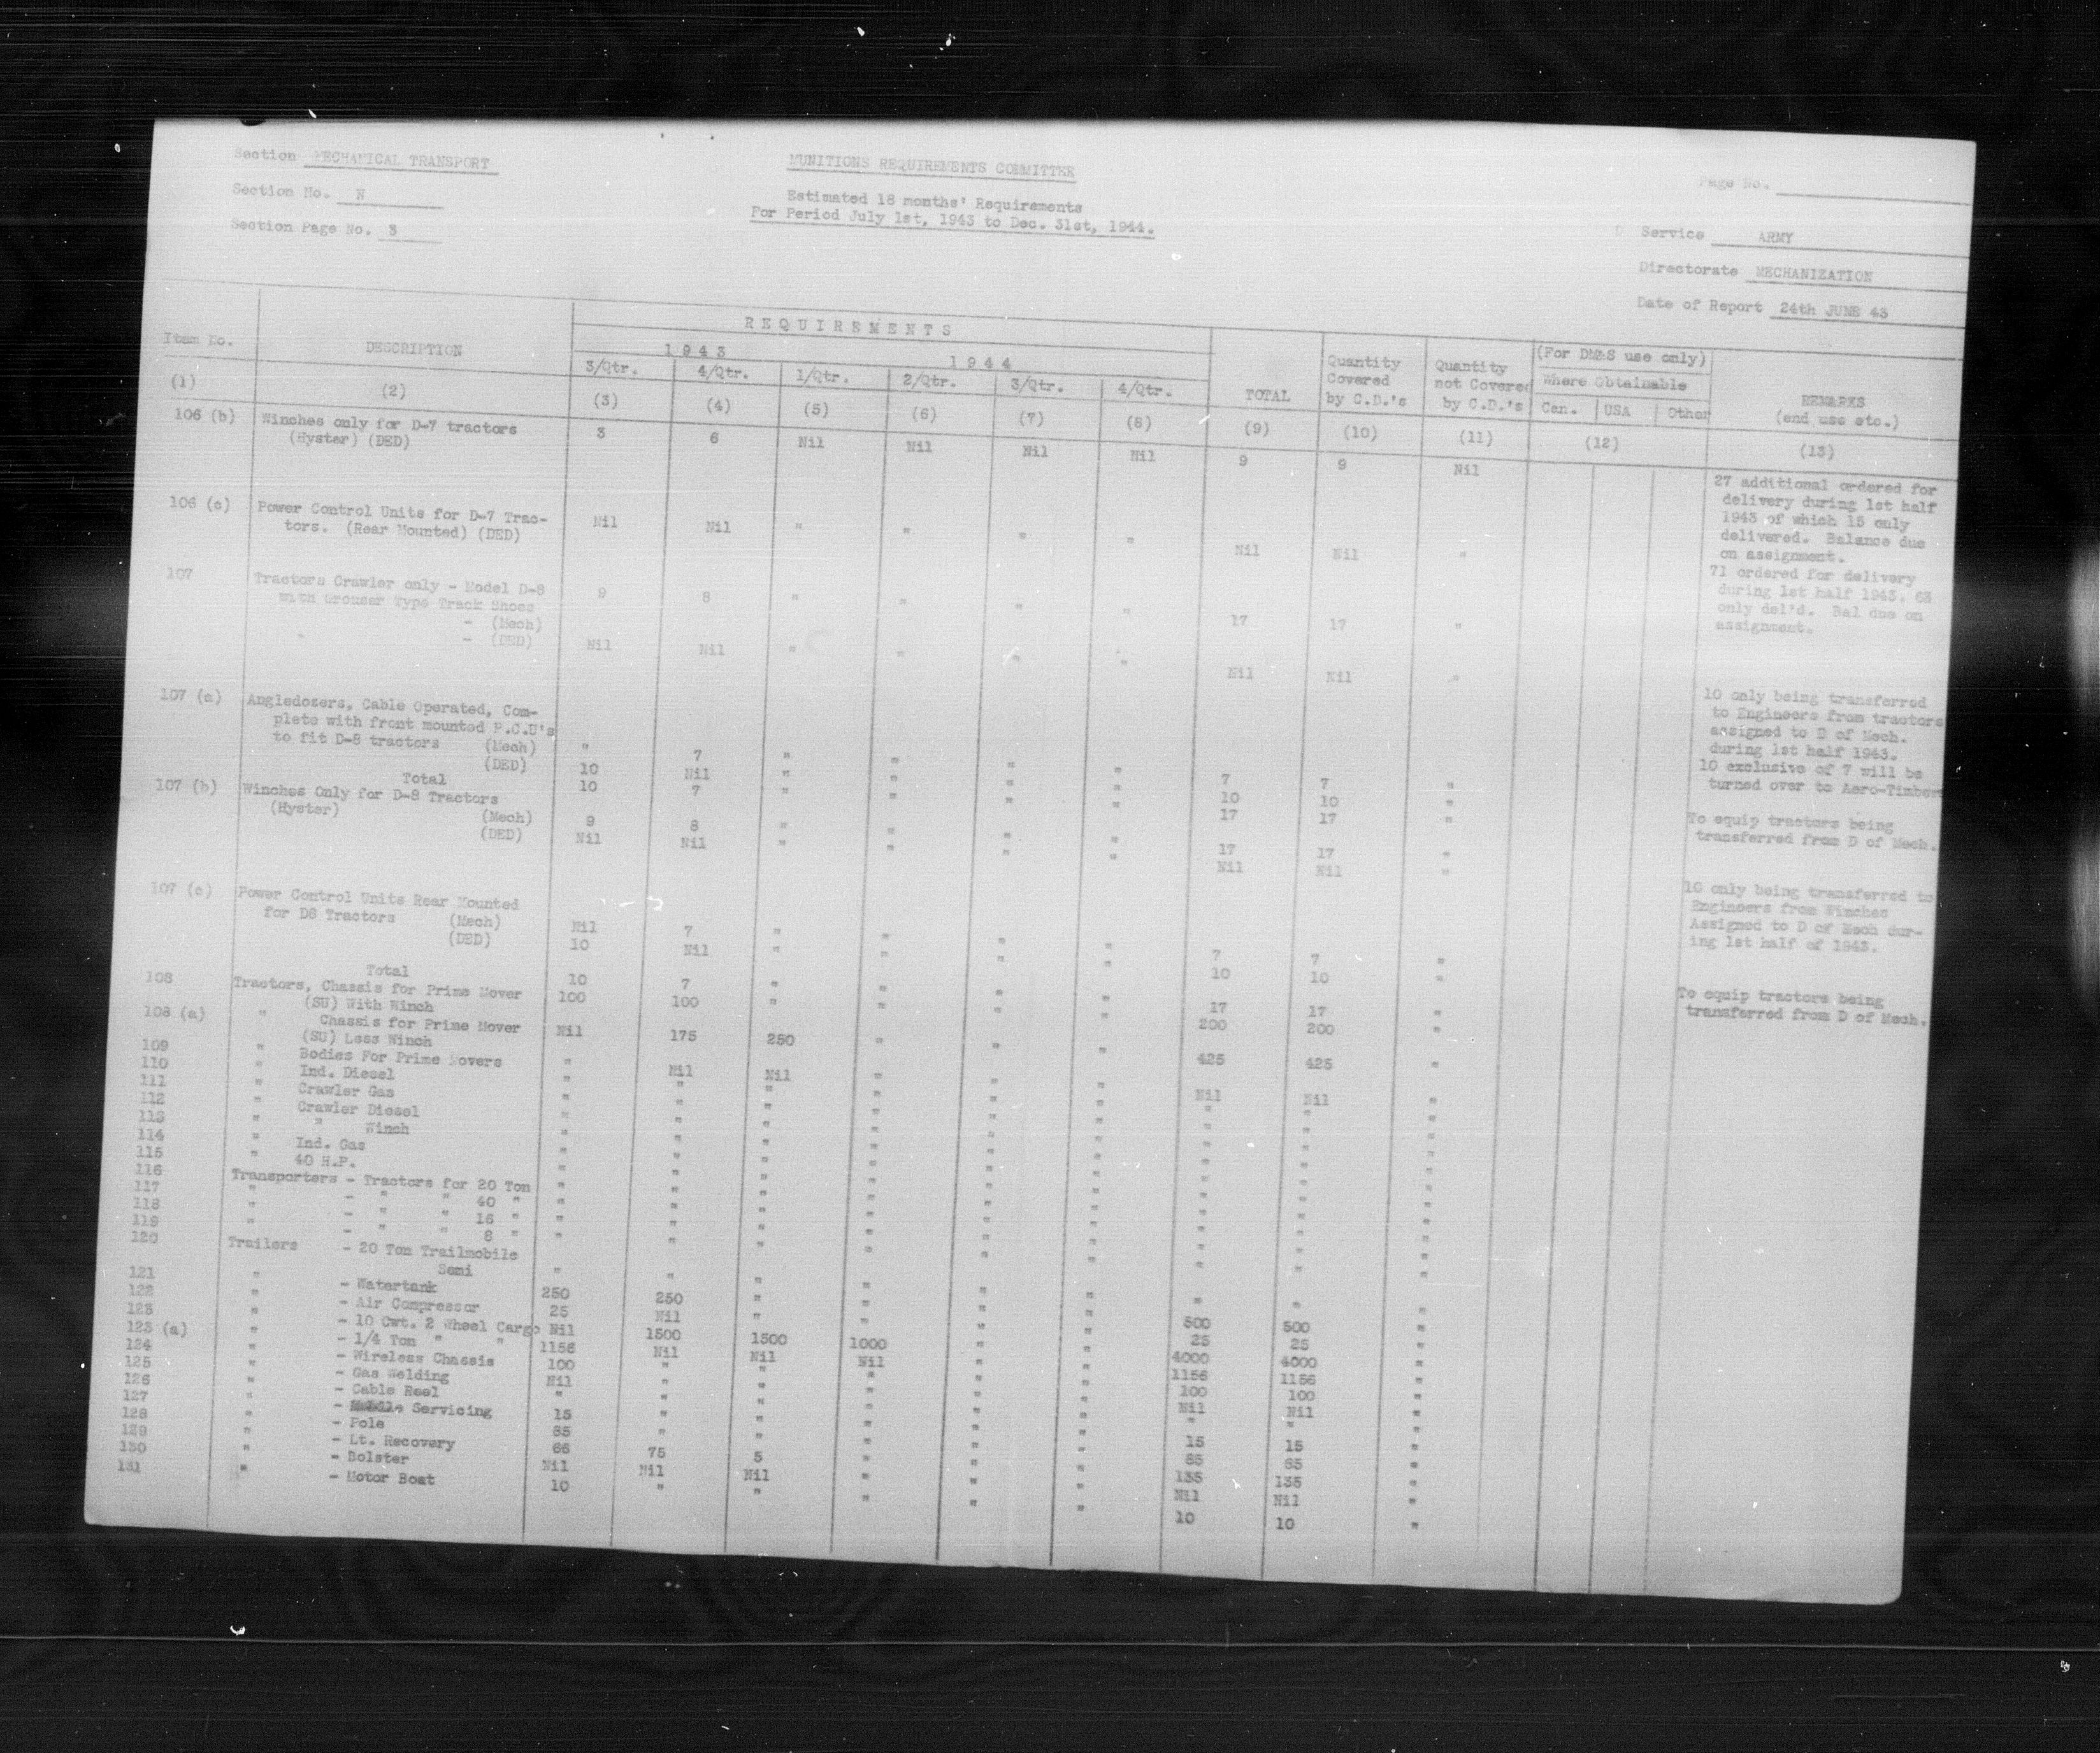 Section MECHANICAL TRANSPORT
Section No. N
Section Page No. 3
MUNITIONS REQUIREMENTS COMMITTEE
Estimated 18 months' Requirements
For Period July 1st, 1943 to Dec. 31st, 1944.
Page No.
Service ARMY
Directorate MECHANIZATION
Date of Report 24th JUNE 43
Item No. DESCRIPTION REQUIREMENTS
1943 1944
3/Qtr. 4/Qtr. 1/Qtr. 2/Qtr. 3/Qtr. 4/Qtr. TOTAL
Quantity Covered by C.D.'s
Quantity not Covered by C.D.'s
(For DM&S use only)
Where Obtainable
Can. USA Other
REMARKS
(end use etc.)
(1) (2) (3) (4) (5) (6) (7) (8) (9) (10) (11) (12) (13)
106 (b) Winches only for D-7 tractors
(Hyster) (DED) 3 6 Nil Nil Nil Nil 9 9 Nil
27 additional ordered for
delivery during 1st half
1943 of which 15 only
delivered. Balance due
on assignment.
106 (c) Power Control Units for D-7 Trac-
tors. (Rear Mounted) (DED) Nil Nil " " " " Nil Nil "
107 Tractors Crawler only - Model D-8
with Grouser Type Track Shoes
- (Mech) 9 8 " " " " 17 17 "
" - (DED) Nil Nil " " " " Nil Nil "
71 ordered for delivery
during 1st half 1943. 63
only del'd. Bal due on
assignment.
10 only being transferred
to Engineers from tractors
assigned to D of Mech.
during 1st half 1943.
107 (a) Angledozers, Cable Operated, Com-
plete with front mounted P.C.U's
to fit D-8 tractors (Mech) " 7 " " " " 7 7 "
(DED) 10 Nil " " " " 10 10 "
Total 10 7 " " " " 17 17 "
10 exclusive of 7 will be
turned over to Aero-Timber
To equip tractors being
transferred from D of Mech.
107 (b) Winches Only for D-8 Tractors
(Hyster) (Mech) 9 8 " " " " 17 17 "
(DED) Nil Nil " " " " Nil Nil "
10 only being transferred to
Engineers from Winches
Assigned to D of Mech dur-
ing 1st half of 1943.
107 (c) Power Control Units Rear Mounted
for D8 Tractors (Mech) Nil 7 " " " " 7 7 "
(DED) 10 Nil " " " " 10 10 "
Total 10 7 " " " " 17 17 "
To equip tractors being
transferred from D of Mech.
108 Tractors, Chassis for Prime Mover
(SU) With Winch 100 100 " " " " 200 200 "
108 (a) " Chassis for Prime Mover
(SU) Less Winch Nil 175 250 " " " 425 425 "
109 " Bodies For Prime Movers " Nil Nil " " " Nil Nil "
110 " Ind. Diesel " " " " " " " " "
111 " Crawler Gas " " " " " " " " "
112 " Crawler Diesel " " " " " " " " "
113 " " Winch " " " " " " " " "
114 " Ind. Gas " " " " " " " " "
115 " 40 H.P. " " " " " " " " "
116 Transporters - Tractors for 20 Ton " " " " " " " " "
117 " - " " 40 " " " " " " " " " "
118 " - " " 16 " " " " " " " " " "
119 " - " " 8 " " " " " " " " " "
120 Trailers - 20 Ton Trailmobile
Semi " " " " " " " " "
121 " - Watertank 250 250 " " " " 500 500 "
122 " - Air Compressor 25 Nil " " " " 25 25 "
123 " - 10 Cwt. 2 Wheel Cargo Nil 1500 1500 1000 " " 4000 4000 "
123 (a) " - 1/4 Ton " " 1156 Nil Nil Nil " " 1156 1156 "
124 " - Wireless Chassis 100 " " " " " 100 100 "
125 " - Gas Welding Nil " " " " " Nil Nil "
126 " - Cable Reel " " " " " " " " "
127 " - Servicing 15 " " " " " 15 15 "
128 " - Pole 85 " " " " " 85 85 "
129 " - Lt. Recovery 55 75 5 " " " 135 135 "
130 " - Bolster Nil Nil Nil " " " Nil Nil "
131 " - Motor Boat 10 " " " " " 10 10 "